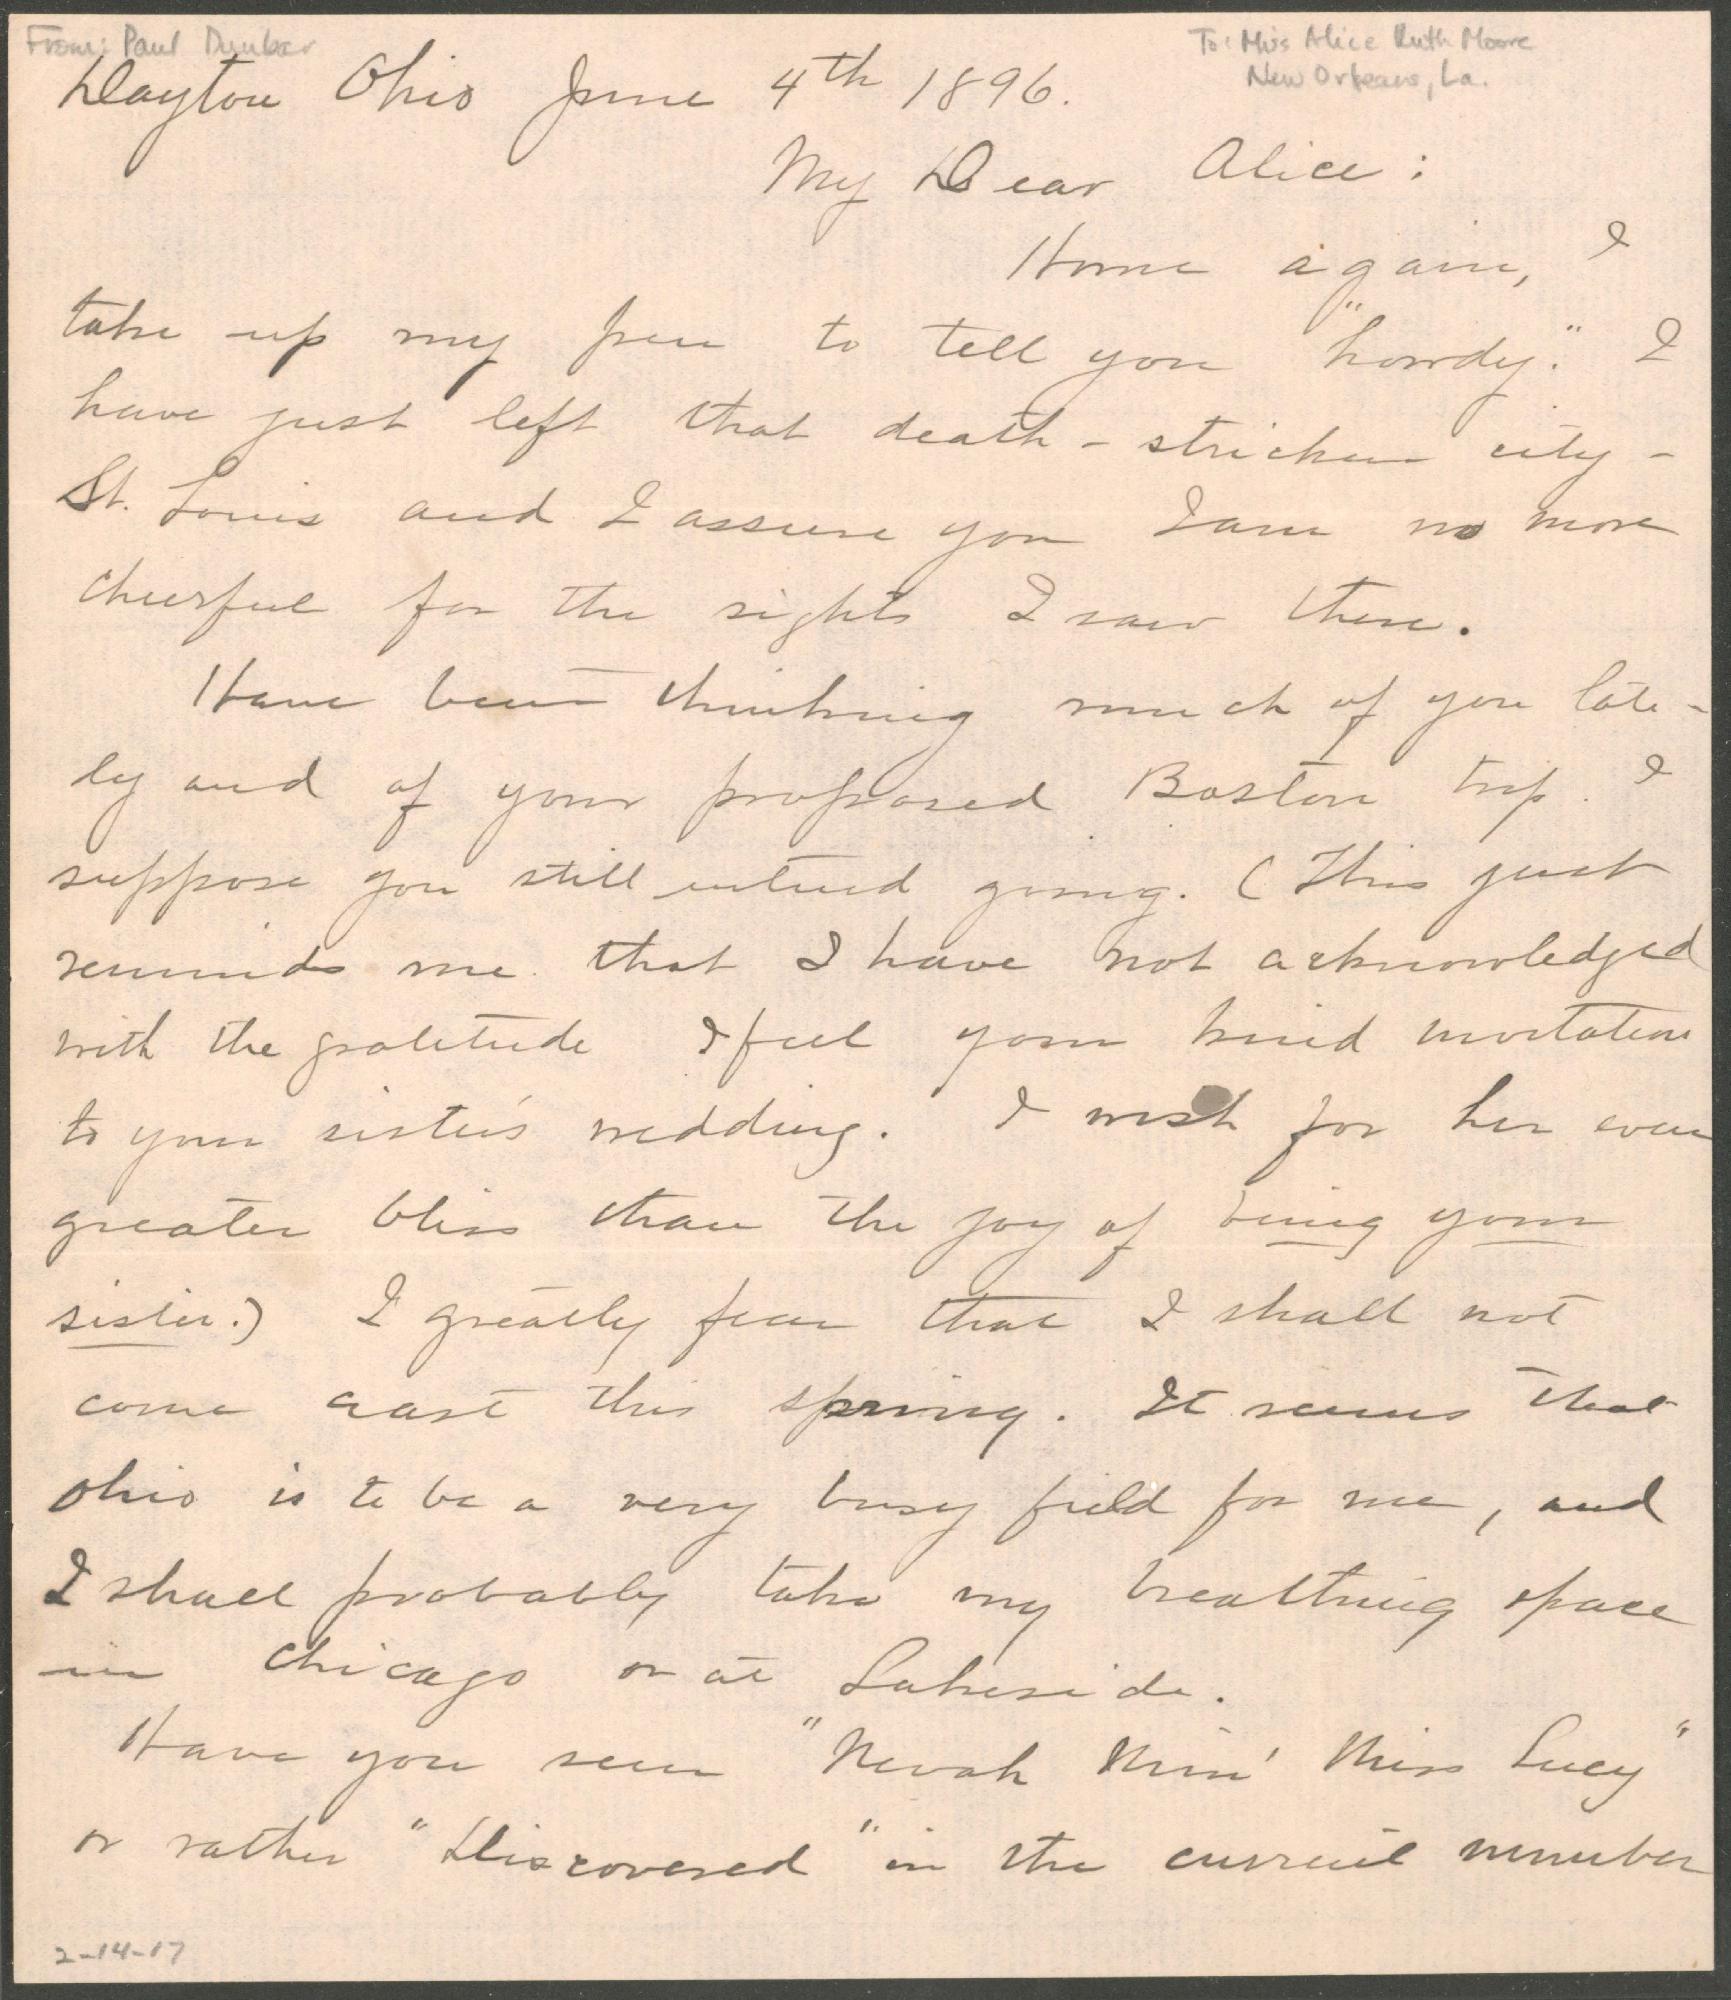 From: Paul Dunbar
To: Miss Alice Ruth Moore
New Orleans, La.
Dayton Ohio June 4th 1896.
My Dear Alice:
Home again, I
take up my pen to tell you "howdy." I
have just left that death-stricken city -
St. Louis and I assure you I am no more
cheerful for the sights I saw there.
Have been thinking much of you late-
ly and of your proposed Boston trip. I
suppose you still intend going. (This just
reminds me that I have not acknowledged
with the gratitude I feel your kind invitation
to your sister's wedding. I wish for her even
greater bliss than the joy of being your
sister.) I greatly fear that I shall not
come east this spring. It seems that
Ohio is to be a very busy field for me, and
I shall probably take my breathing space
in Chicago or at Lakeside.
Have you seen "Nevah Min' Miss Lucy"
or rather "Discovered" in the current number
2-14-17